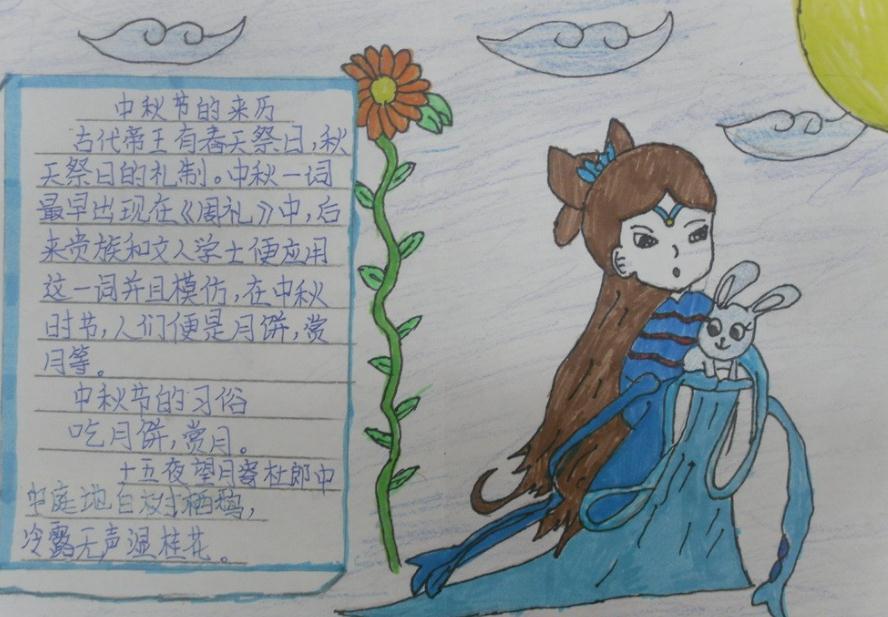 中秋节的来历
古代帝王有春天祭日,秋
天祭日的礼制。中秋一词
最早出现在《周礼》中,后
来贵族和文人学士便应用
这一词并且模仿,在中秋
时节,人们便是月饼,赏
月等。
中秋节的习俗
吃月饼,赏月。
十五夜望月寄杜郎中
中庭地白树栖鸦,
冷露无声湿桂花。